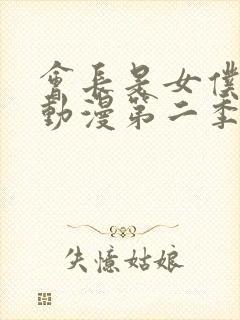 會長是女僕
動漫第二季
失憶姑娘